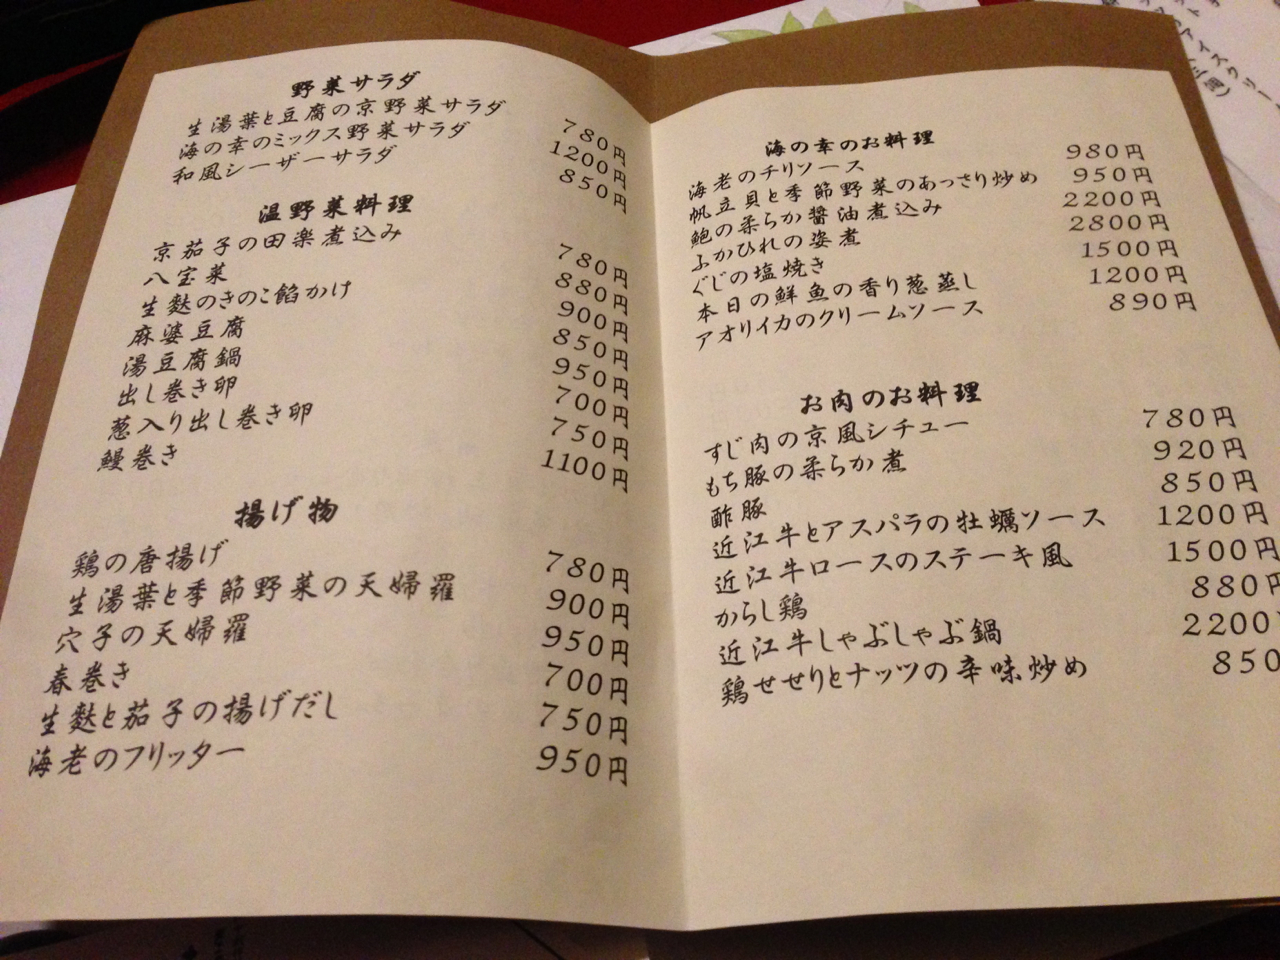 野菜サラダ
生湯葉と豆腐の京野菜サラダ 780円
海の幸のミックス野菜サラダ 1200円
和風シーザーサラダ 850円
温野菜料理
京茄子の田楽煮込み 780円
八宝菜 880円
生麩のきのこ餡かけ 900円
麻婆豆腐 850円
湯豆腐鍋 950円
出し巻き卵 700円
葱入り出し巻き卵 750円
鰻巻き 1100円
揚げ物
鶏の唐揚げ 780円
生湯葉と季節野菜の天婦羅 900円
穴子の天婦羅 950円
春巻き 700円
生麩と茄子の揚げだし 750円
海老のフリッター 950円
海の幸のお料理
海老のチリソース 980円
帆立貝と季節野菜のあっさり炒め 950円
鮑の柔らか醤油煮込み 2200円
ふかひれの姿煮 2800円
ぐじの塩焼き 1500円
本日の鮮魚の香り葱蒸し 1200円
アオリイカのクリームソース 890円
お肉のお料理
すじ肉の京風シチュー 780円
もち豚の柔らか煮 920円
酢豚 850円
近江牛とアスパラの牡蠣ソース 1200円
近江牛ロースのステーキ風 1500円
からし鶏 880円
近江牛しゃぶしゃぶ鍋 2200
鶏せせりとナッツの辛味炒め 850